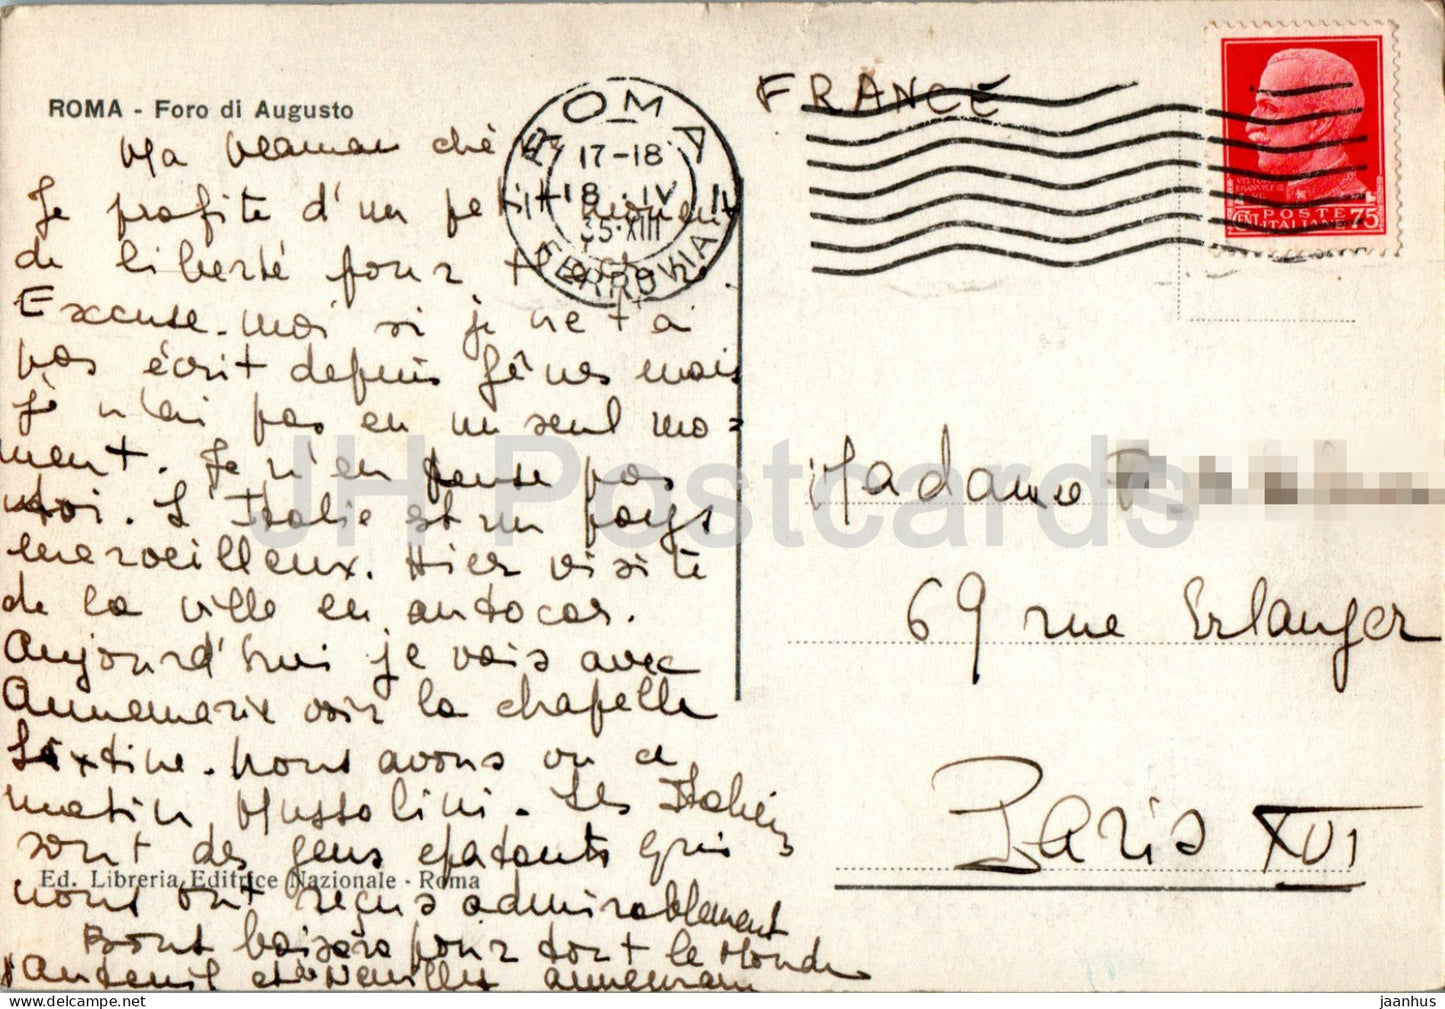 ROMA - Foro di Augusto
Ma Maman ché
Je profite d'un petit moment
de liberté pour t'écrire
Excuse-moi si je ne t'ai
pas écrit depuis Gênes mais
je n'ai pas eu un seul mo=
ment. Je n'en pense pas
moi. L'Italie est un pays
merveilleux. Hier visite
de la ville en autocar.
Aujourd'hui je vais avec
Annemarie voir la chapelle
Sixtine. Nous avons vu ce
matin Mussolini. Les Italiens
sont des gens epatants qui
nous ont reçus admirablement
Bons baisers pour tout le Monde
Auteuil et Neuilly
Ed. Libreria Editrice Nazionale - Roma
ROMA
17-18
18 IV
35·XIII
FERROVIA
FRANCE
POSTE ITALIANE
CENT 75
Madame
69 rue Erlanger
Paris XVI
JH Postcards
jaanhus www.delcampe.net